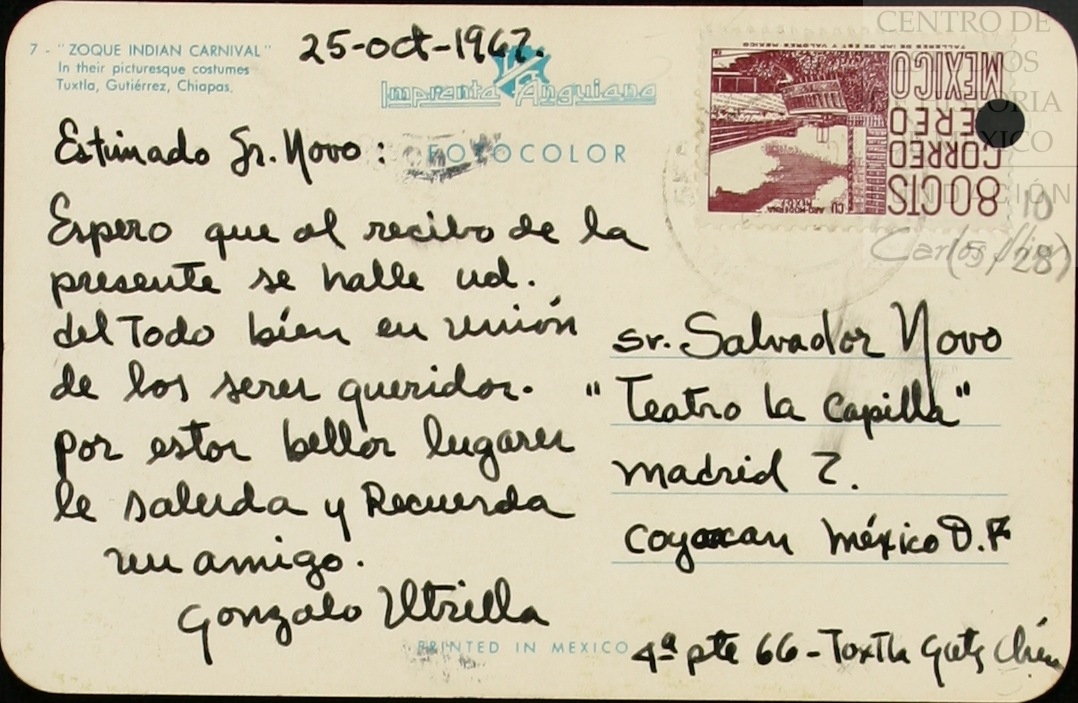 7 - "ZOQUE INDIAN CARNIVAL"
In their picturesque costumes
Tuxtla, Gutiérrez, Chiapas.
25-oct-1967.
Imprenta Anguiano
FOTOCOLOR
Estimado Sr. Novo:
Espero que al recibo de la
presente se halle ud.
del Todo bien en unión
de los seres queridos.
por estos bellos lugares
le saluda y Recuerda
un amigo.
Gonzalo Utrilla
PRINTED IN MEXICO
TALLERES DE IMP. DE EST. Y VALORES MEXICO
MEXICO
AEREO
CORREO
80CTS
ARQ. MODERNA CU
CENTRO DE
MÉXICO
FUNDACIÓN
Carlos Slim
10
(5/28)
sr. Salvador Novo
"Teatro la capilla"
madrid 7.
coyoacan México D.F
4ª pte 66 - Tuxtla Gutz Chis